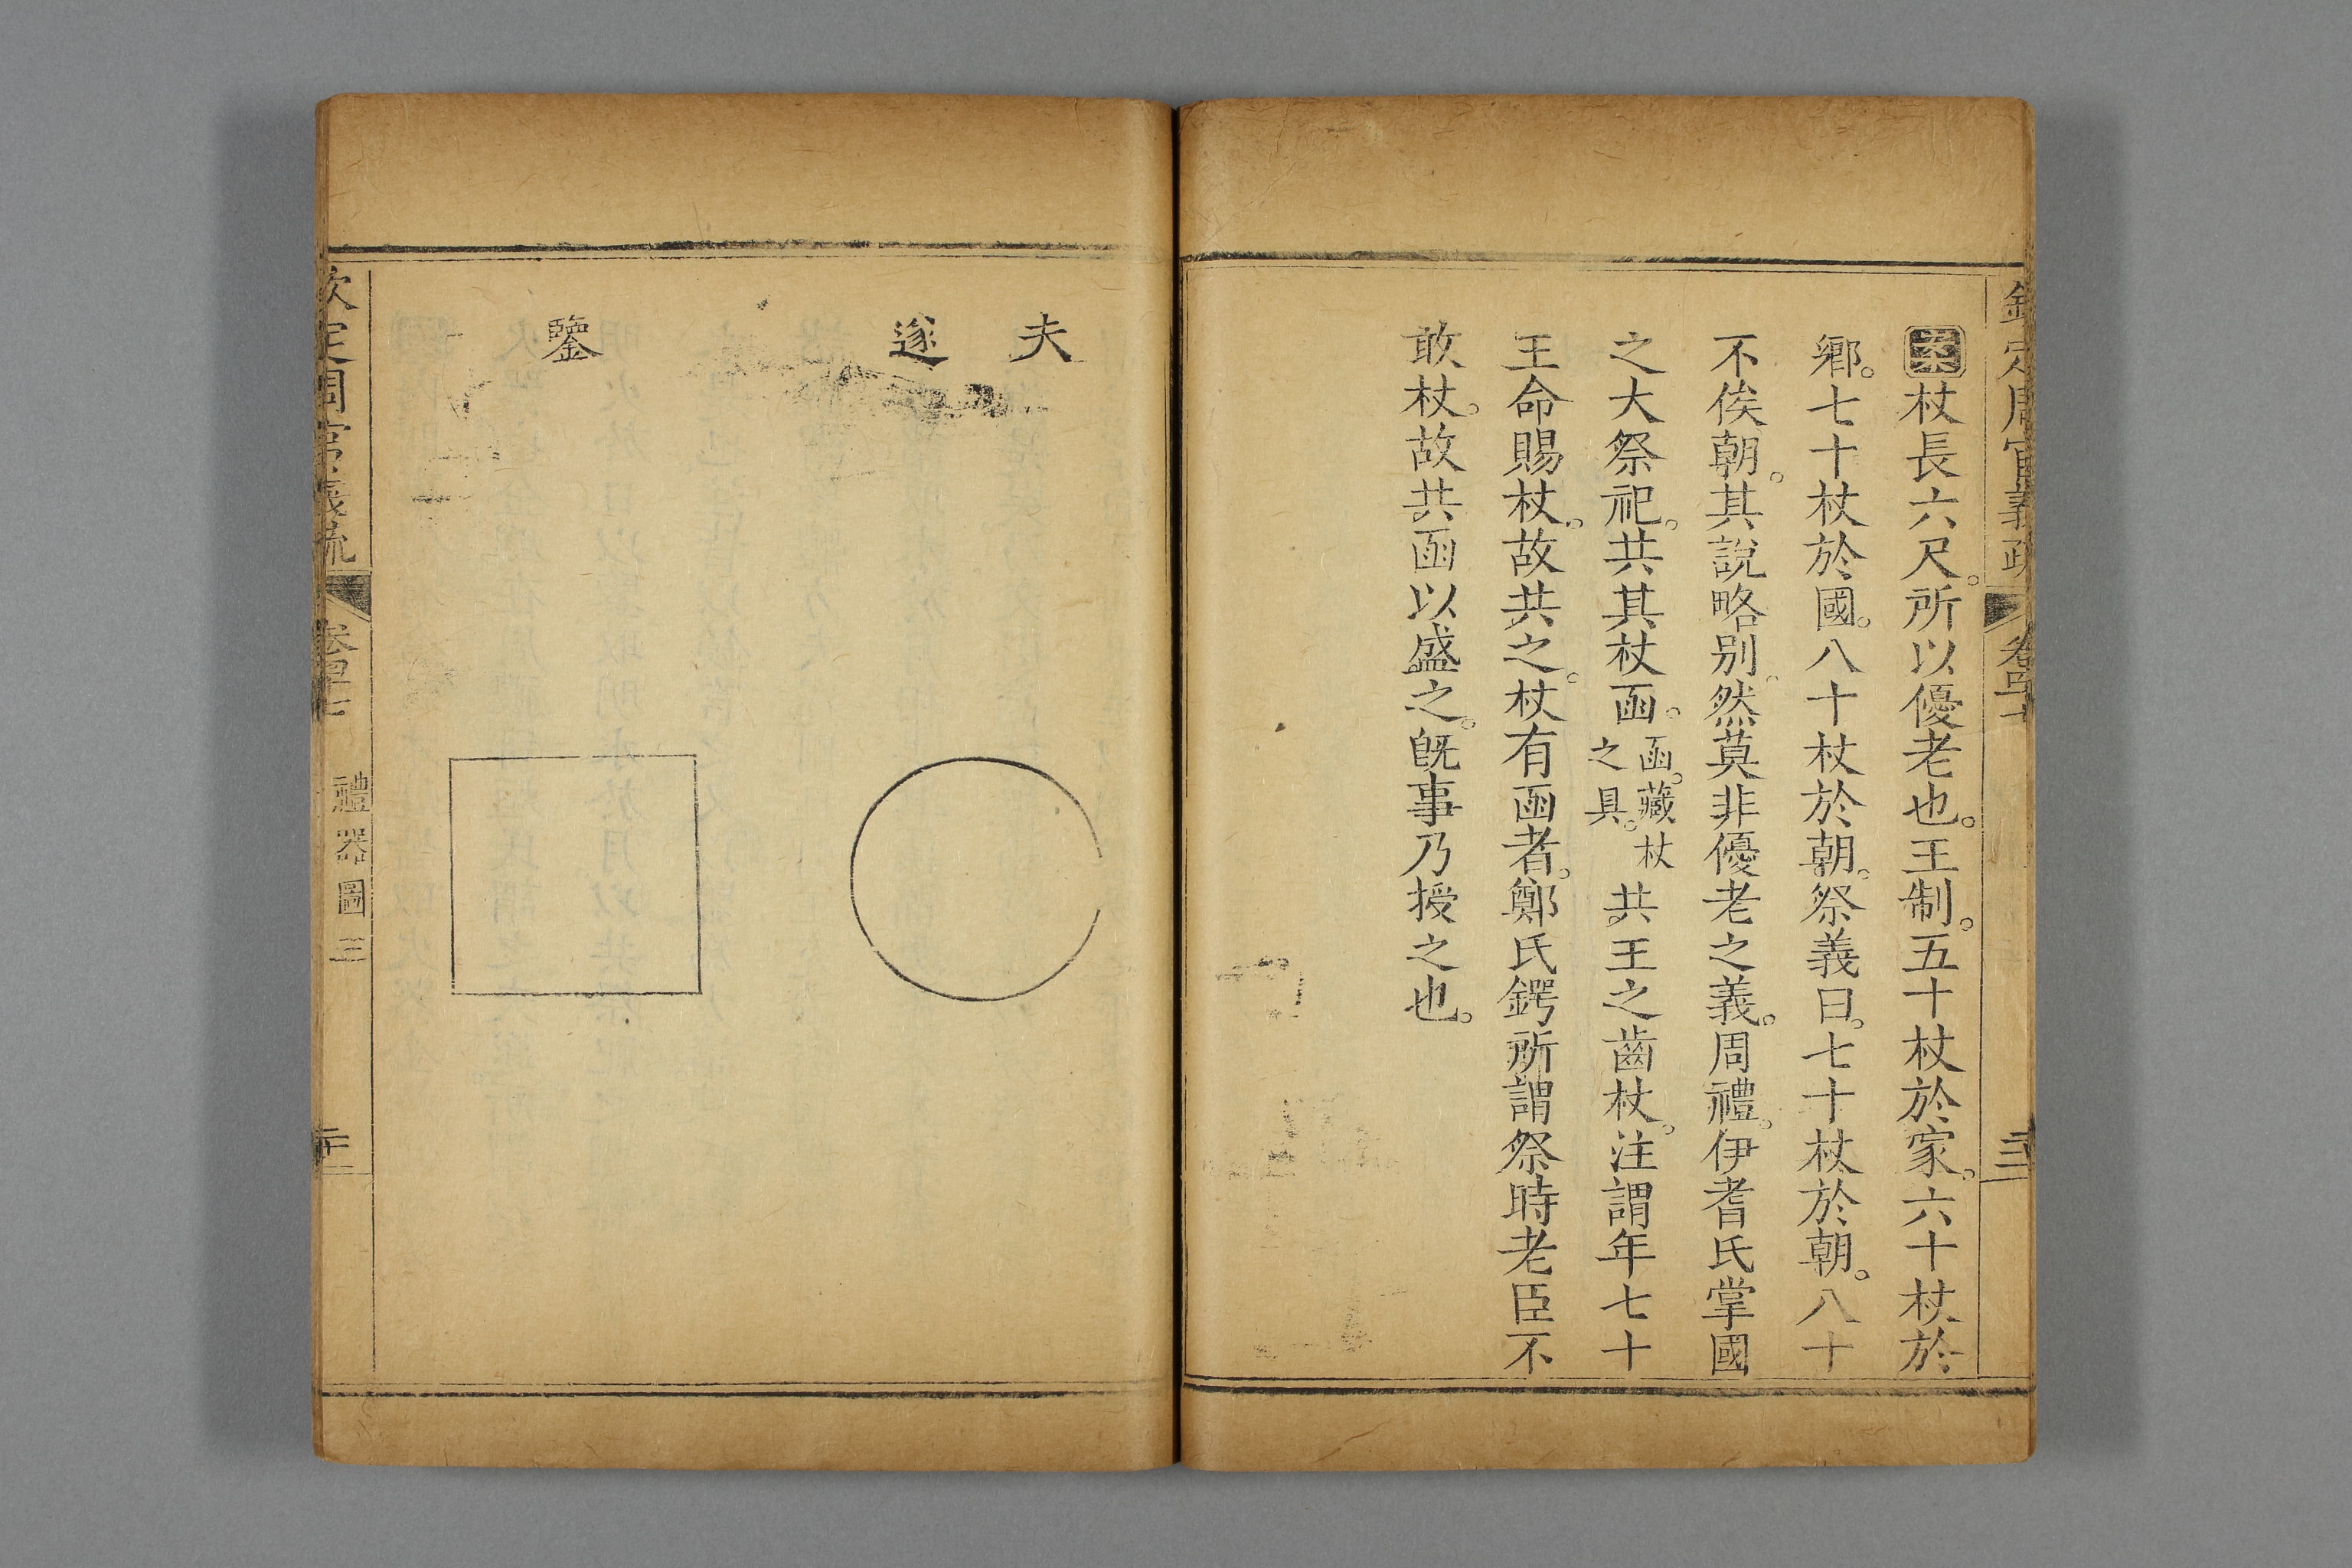 欽定周官義疏 卷四十七
案杖長六尺。所以優老也。王制。五十杖於家。六十杖於
鄉。七十杖於國。八十杖於朝。祭義曰。七十杖於朝。八十
不俟朝。其說略別。然莫非優老之義。周禮。伊耆氏掌國
之大祭祀。共其杖函。函。藏杖之具。共王之齒杖。注謂年七十
王命賜杖。故共之。杖有函者。鄭氏鍔所謂祭時老臣不
敢杖。故共函以盛之。旣事乃授之也。
夫遂
鑒
欽定周官義疏 卷四十七 禮器圖三